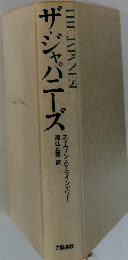 THE JAPANESE
ザ・ジャパニーズ
エドウィン・O・ライシャワー
國弘正雄 訳
文藝春秋